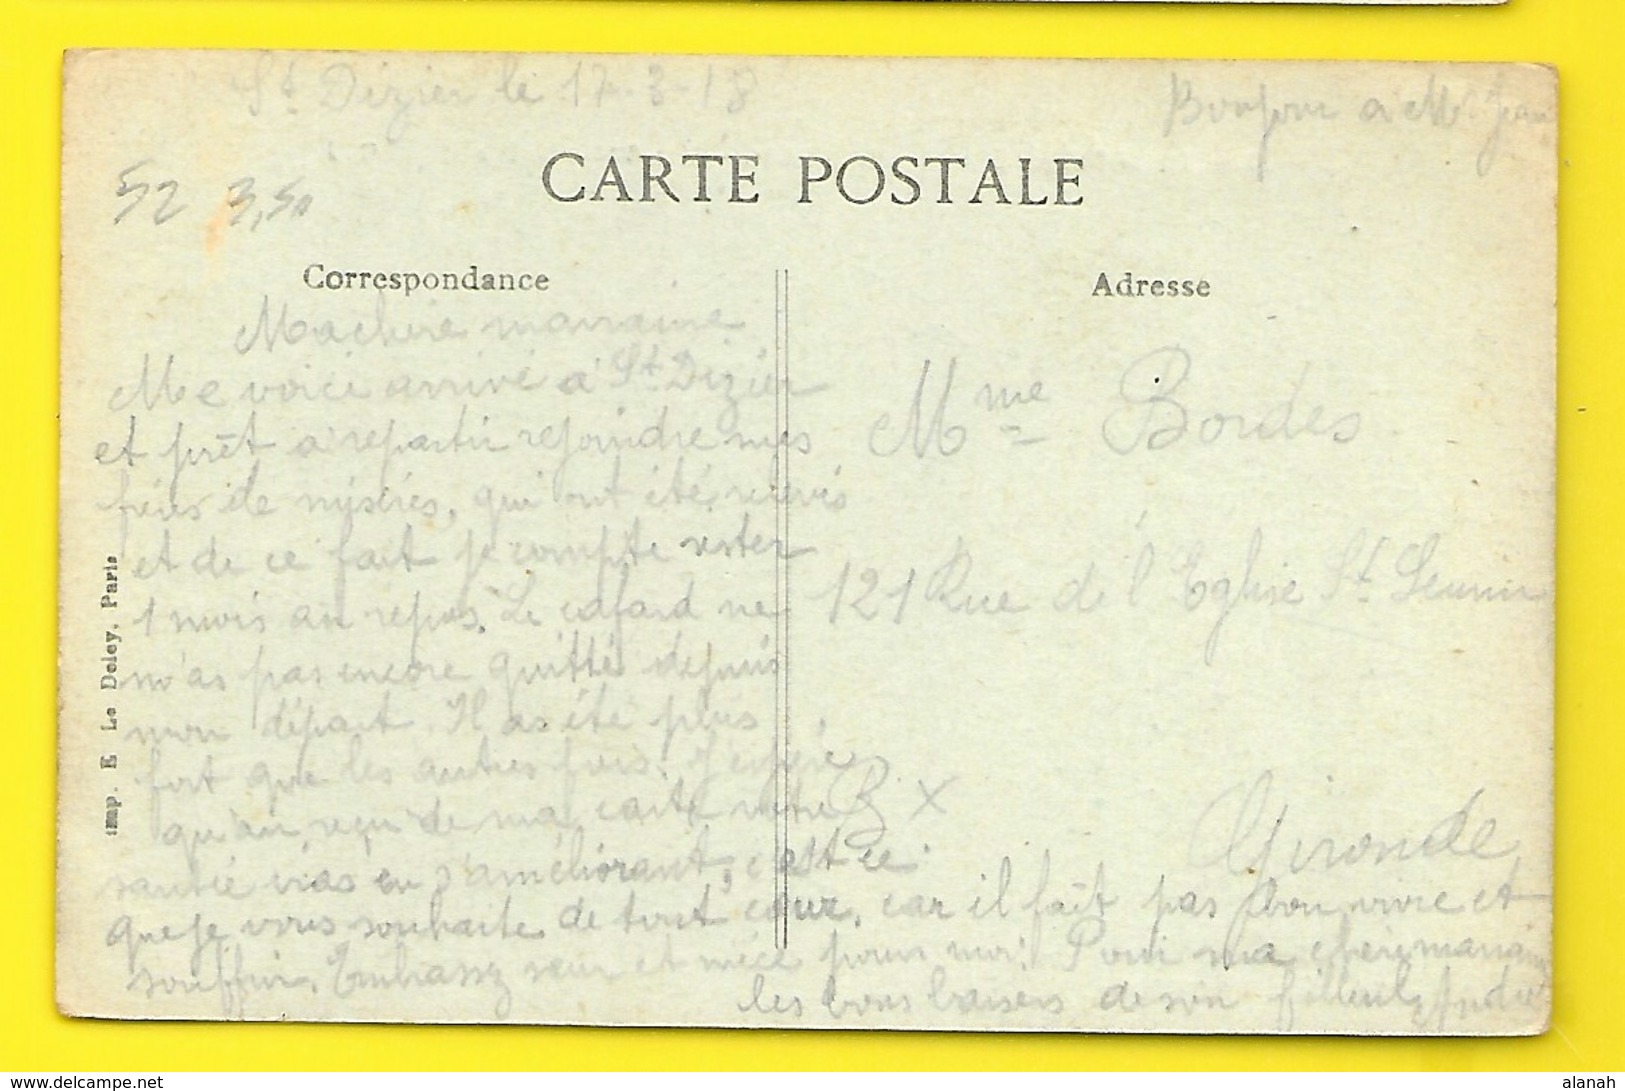 St Dizier le 17-3-18
Bonjour à Mr Jean
52 3,50
CARTE POSTALE
Correspondance
Adresse
Ma chere marraine
Me voici arrivé a St Dizier
et prêt a repartir rejoindre mes
frères de misères, qui ont été relevés
et de ce fait je compte rester
1 mois au repos. Le cafard ne
m'as pas encore quitté depuis
mon départ. Il as été plus
fort que les autres fois. J'espère
qu'au reçu de ma carte votre
santée iras en s'améliorant, c'est ce
que je vous souhaite de tout cœur, car il fait pas bon vivre et
souffrir. Embrassez sœur et nièce pour moi. Pour ma chère marraine
les bons baisers de son filleul André
Mme Bordes
121 Rue de l'Eglise St Seurin
Bx
Gironde
Imp. E Le Deley, Paris
www.delcampe.net
alanah